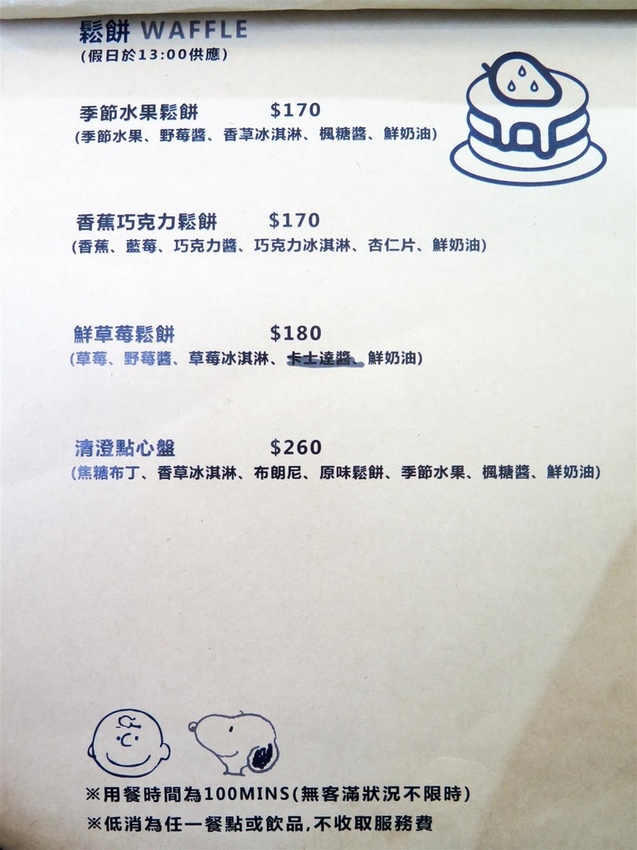 鬆餅 WAFFLE
(假日於13:00供應)
季節水果鬆餅 $170
(季節水果、野莓醬、香草冰淇淋、楓糖醬、鮮奶油)
香蕉巧克力鬆餅 $170
(香蕉、藍莓、巧克力醬、巧克力冰淇淋、杏仁片、鮮奶油)
鮮草莓鬆餅 $180
(草莓、野莓醬、草莓冰淇淋、卡士達醬、鮮奶油)
清澄點心盤 $260
(焦糖布丁、香草冰淇淋、布朗尼、原味鬆餅、季節水果、楓糖醬、鮮奶油)
※用餐時間為100MINS(無客滿狀況不限時)
※低消為任一餐點或飲品,不收取服務費